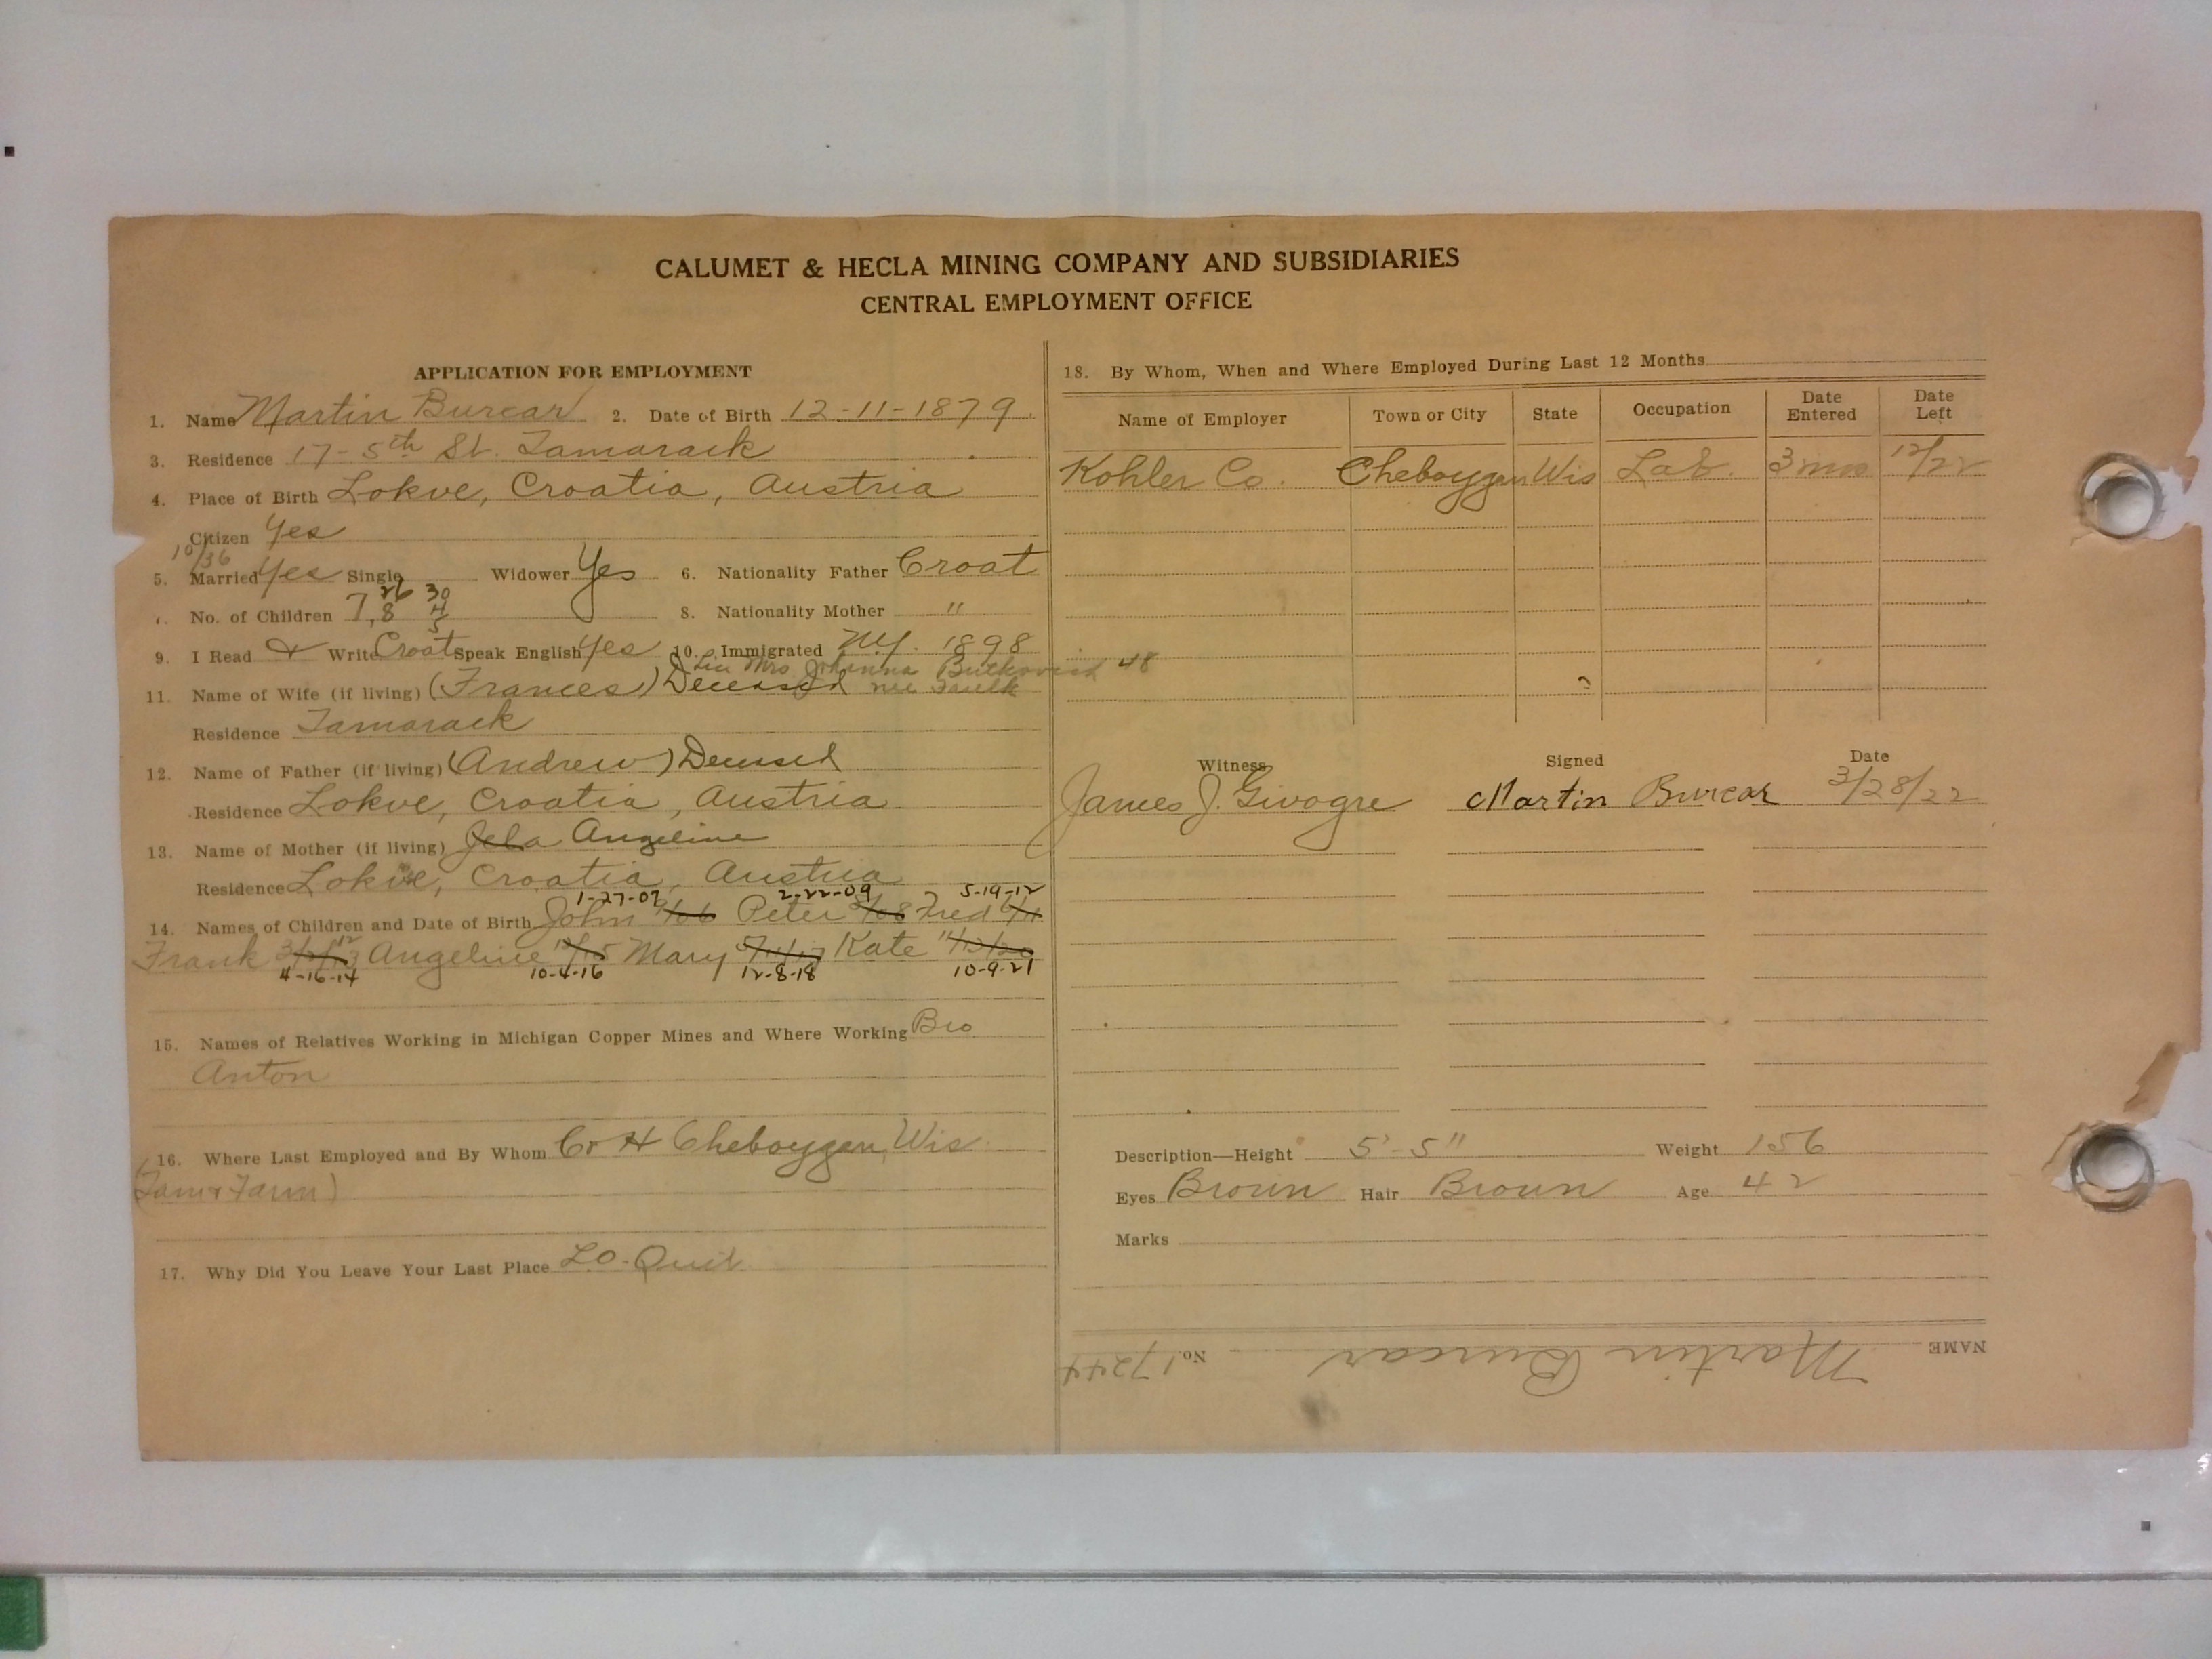 CALUMET & HECLA MINING COMPANY AND SUBSIDIARIES
CENTRAL EMPLOYMENT OFFICE
APPLICATION FOR EMPLOYMENT
1. Name Martin Burcar 2. Date of Birth 12-11-1879
3. Residence 17-5th St. Tamarack
4. Place of Birth Lokve, Croatia, Austria
Citizen Yes
10/36
5. Married Yes Single Widower Yes 6. Nationality Father Croat
26 30
No. of Children 7, 8 4 8. Nationality Mother "
5
9. I Read & Write Croat Speak English Yes 10. Immigrated N.Y. 1898
Mrs Johanna Butkovich 48
11. Name of Wife (if living) (Frances) Deceased nee Faulk
Residence Tamarack
12. Name of Father (if living) (Andrew) Deceased
Residence Lokve, Croatia, Austria
13. Name of Mother (if living) Jela Angeline
Residence Lokve, Croatia, Austria
1-27-07 2-22-09 5-19-12
14. Names of Children and Date of Birth John Peter Fred
Frank Angeline Mary Kate
4-16-14 10-4-16 12-8-18 10-9-21
15. Names of Relatives Working in Michigan Copper Mines and Where Working Bro
Anton
16. Where Last Employed and By Whom C & H Cheboygan, Wis
(Tam & Farm)
17. Why Did You Leave Your Last Place LO-Quit
18. By Whom, When and Where Employed During Last 12 Months
Name of Employer Town or City State Occupation Date Entered Date Left
Kohler Co. Cheboygan Wis Lab. 3 mos 12/22
Witness Signed Date
James J. Givogre Martin Burcar 3/28/22
Description—Height 5'-5" Weight 156
Eyes Brown Hair Brown Age 42
Marks
NAME Martin Burcar No. 17244